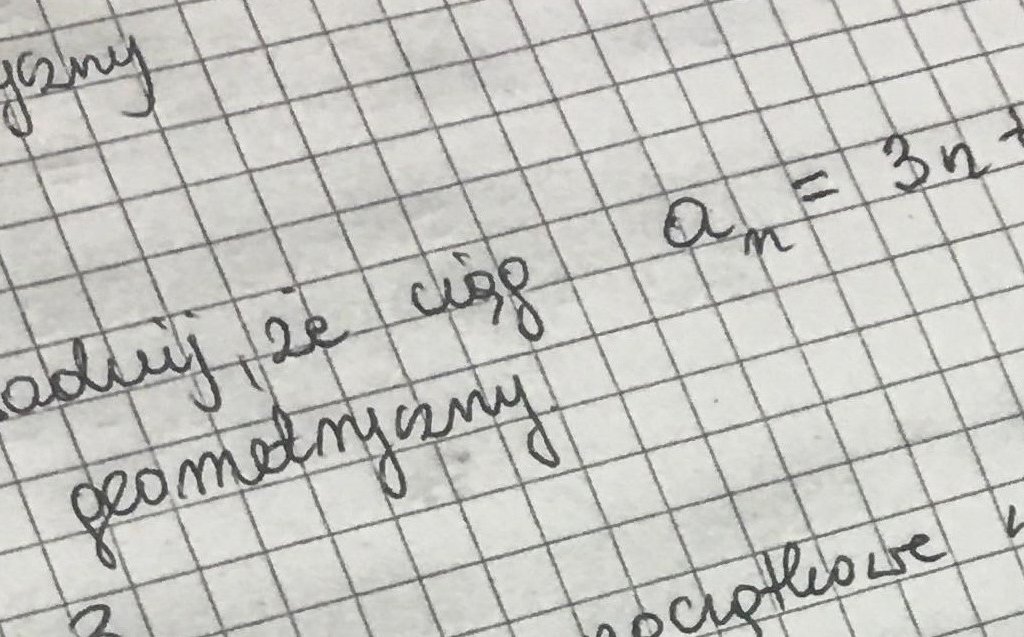 yczny
adnij, że ciąg a_n = 3n +
geometryczny.
3 początkowe